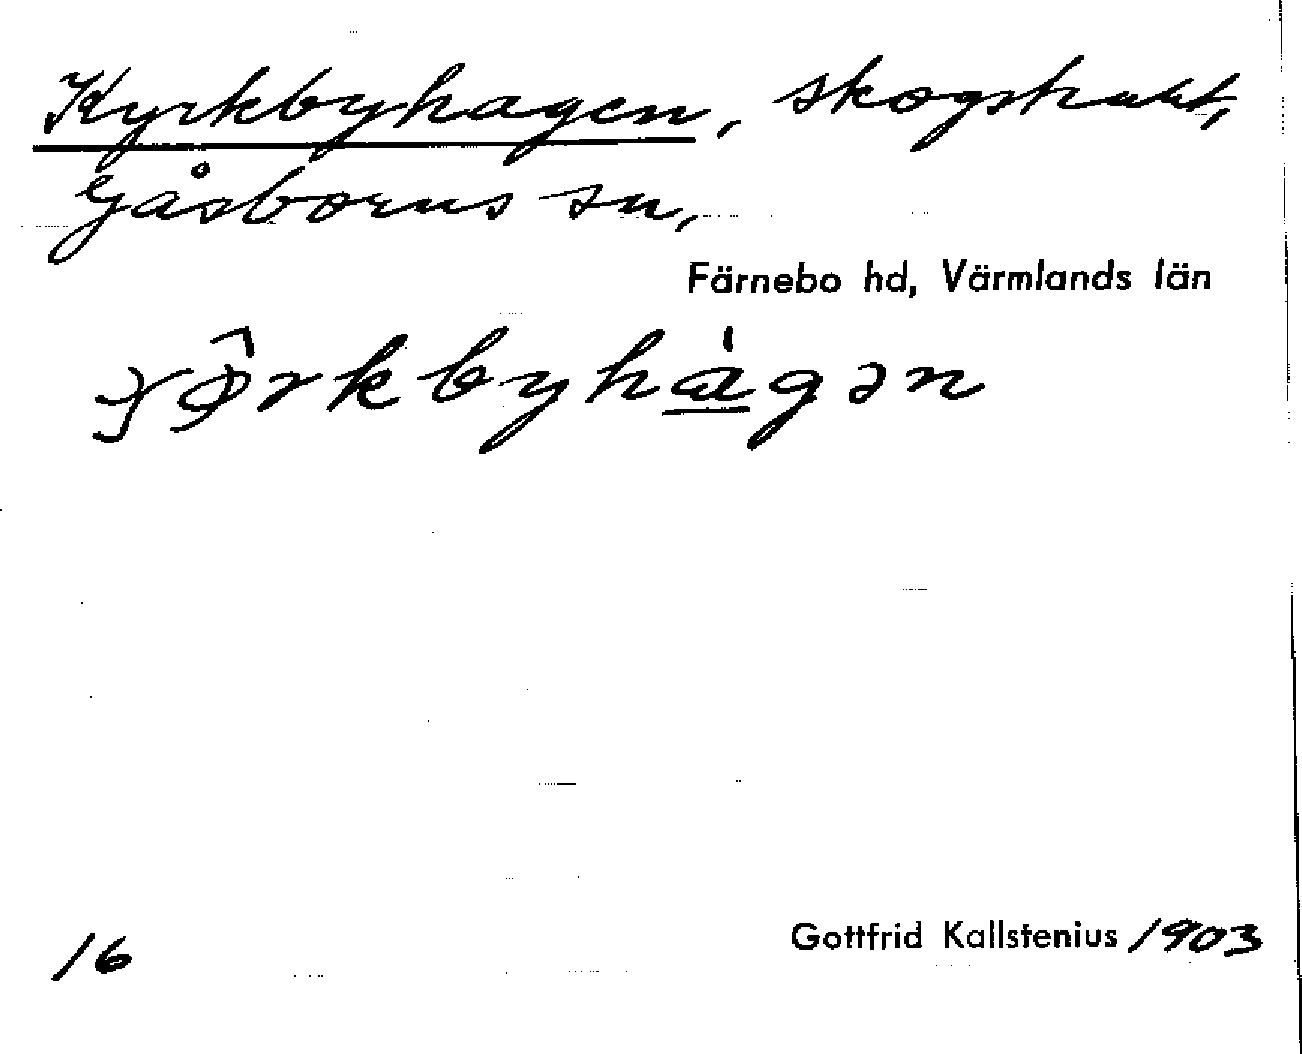 Kyrkbyhagen, skogstrakt,
Gåsborns sn,
Färnebo hd, Värmlands län
16
Gottfrid Kallstenius 1903